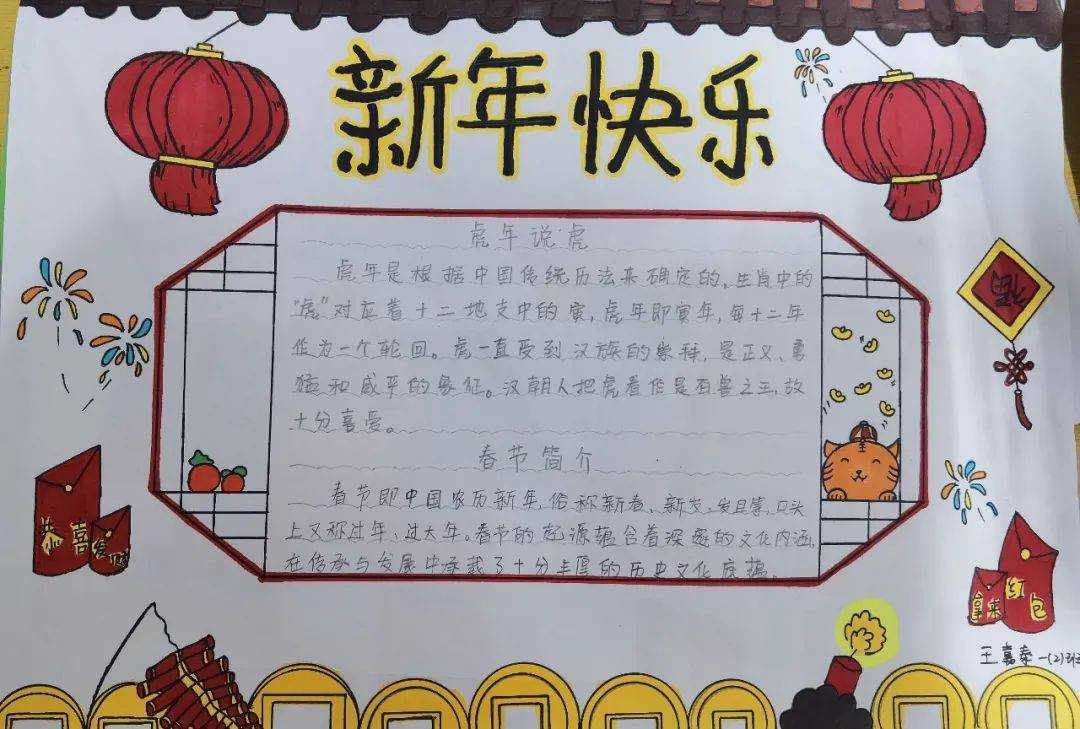 新年快乐
虎年说虎
虎年是根据中国传统历法来确定的,生肖中的
“虎”对应着十二地支中的寅,虎年即寅年,每十二年
作为一个轮回。虎一直受到汉族的崇拜,是正义、勇
猛和威严的象征。汉朝人把虎看作是百兽之王,故
十分喜爱。
春节简介
春节即中国农历新年,俗称新春、新岁、岁旦等,口头
上又称过年、过大年。春节的起源蕴含着深邃的文化内涵,
在传承与发展中承载了十分丰厚的历史文化底蕴。
福
恭喜发财
拿来红包
王嘉 一(2)班